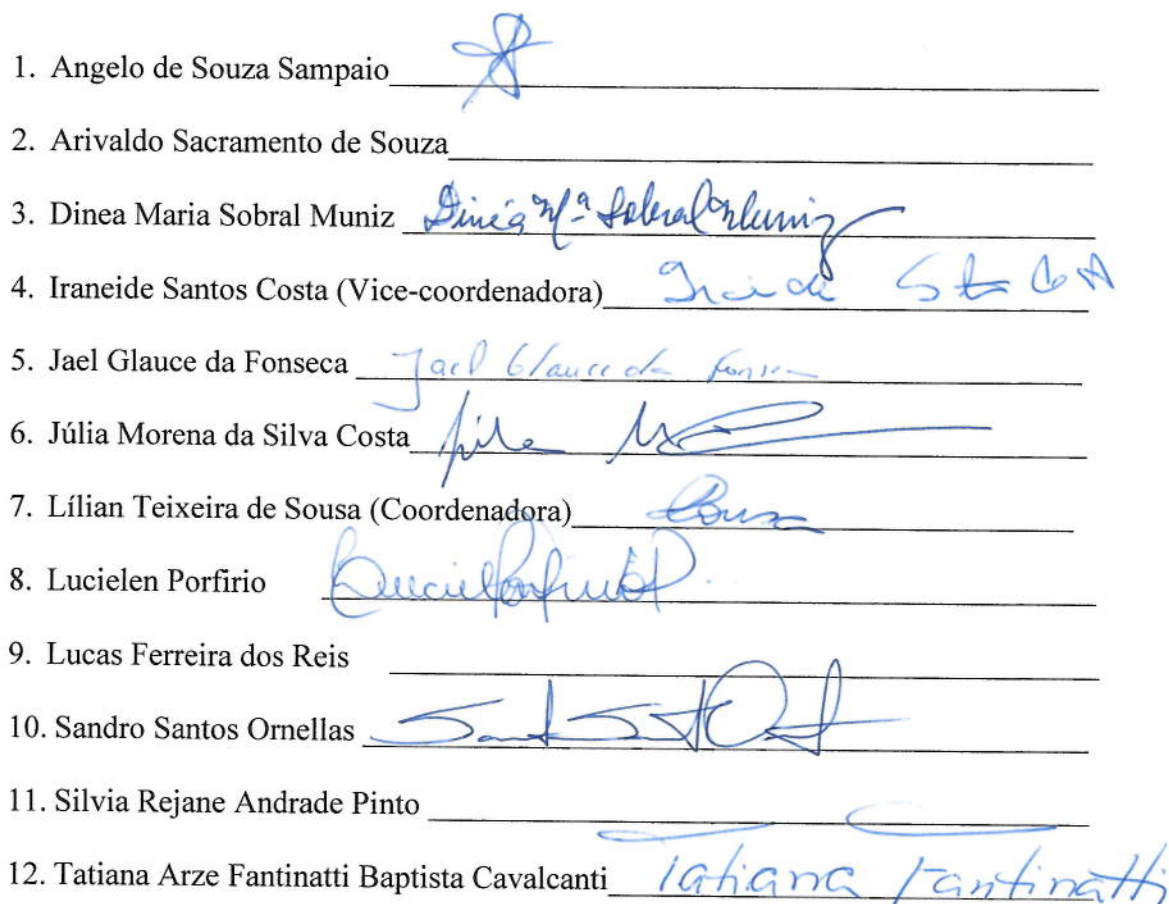 1. Angelo de Souza Sampaio
2. Arivaldo Sacramento de Souza
3. Dinea Maria Sobral Muniz Dinéa Mª Sobral Muniz
4. Iraneide Santos Costa (Vice-coordenadora)
5. Jael Glauce da Fonseca Jael Glauce da Fonseca
6. Júlia Morena da Silva Costa
7. Lílian Teixeira de Sousa (Coordenadora) Sousa
8. Lucielen Porfirio
9. Lucas Ferreira dos Reis
10. Sandro Santos Ornellas
11. Silvia Rejane Andrade Pinto
12. Tatiana Arze Fantinatti Baptista Cavalcanti Tatiana Fantinatti